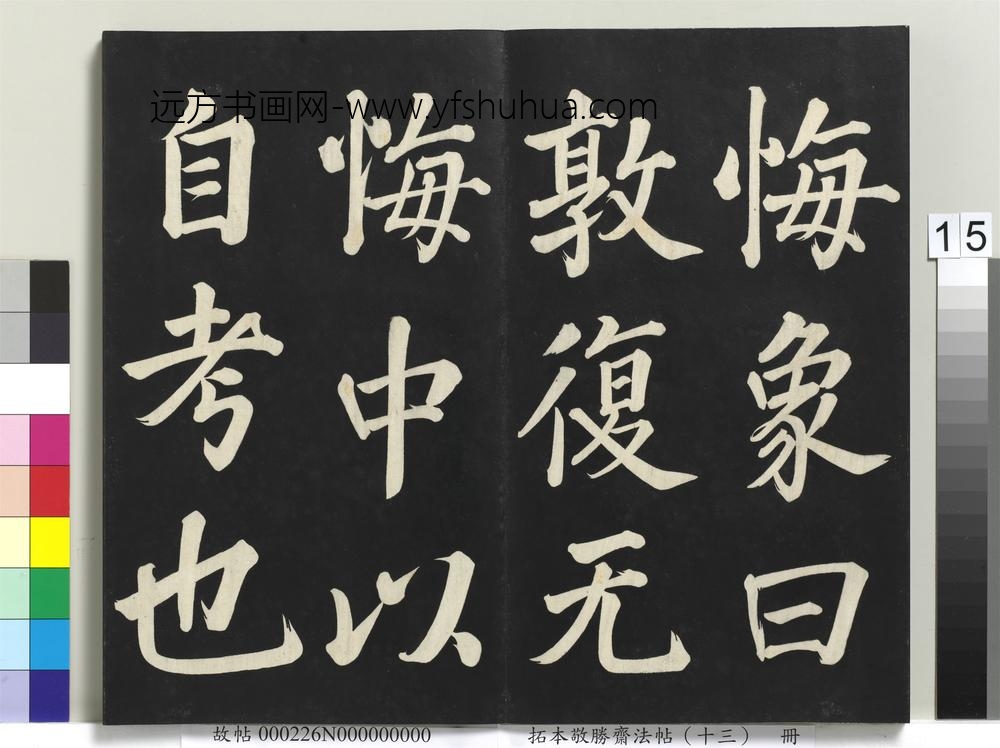 悔象曰
敦復无
悔中以
自考也
远方书画网-www.yfshuhua.com
15
故帖 000226N000000000
拓本敬勝齋法帖（十三） 冊